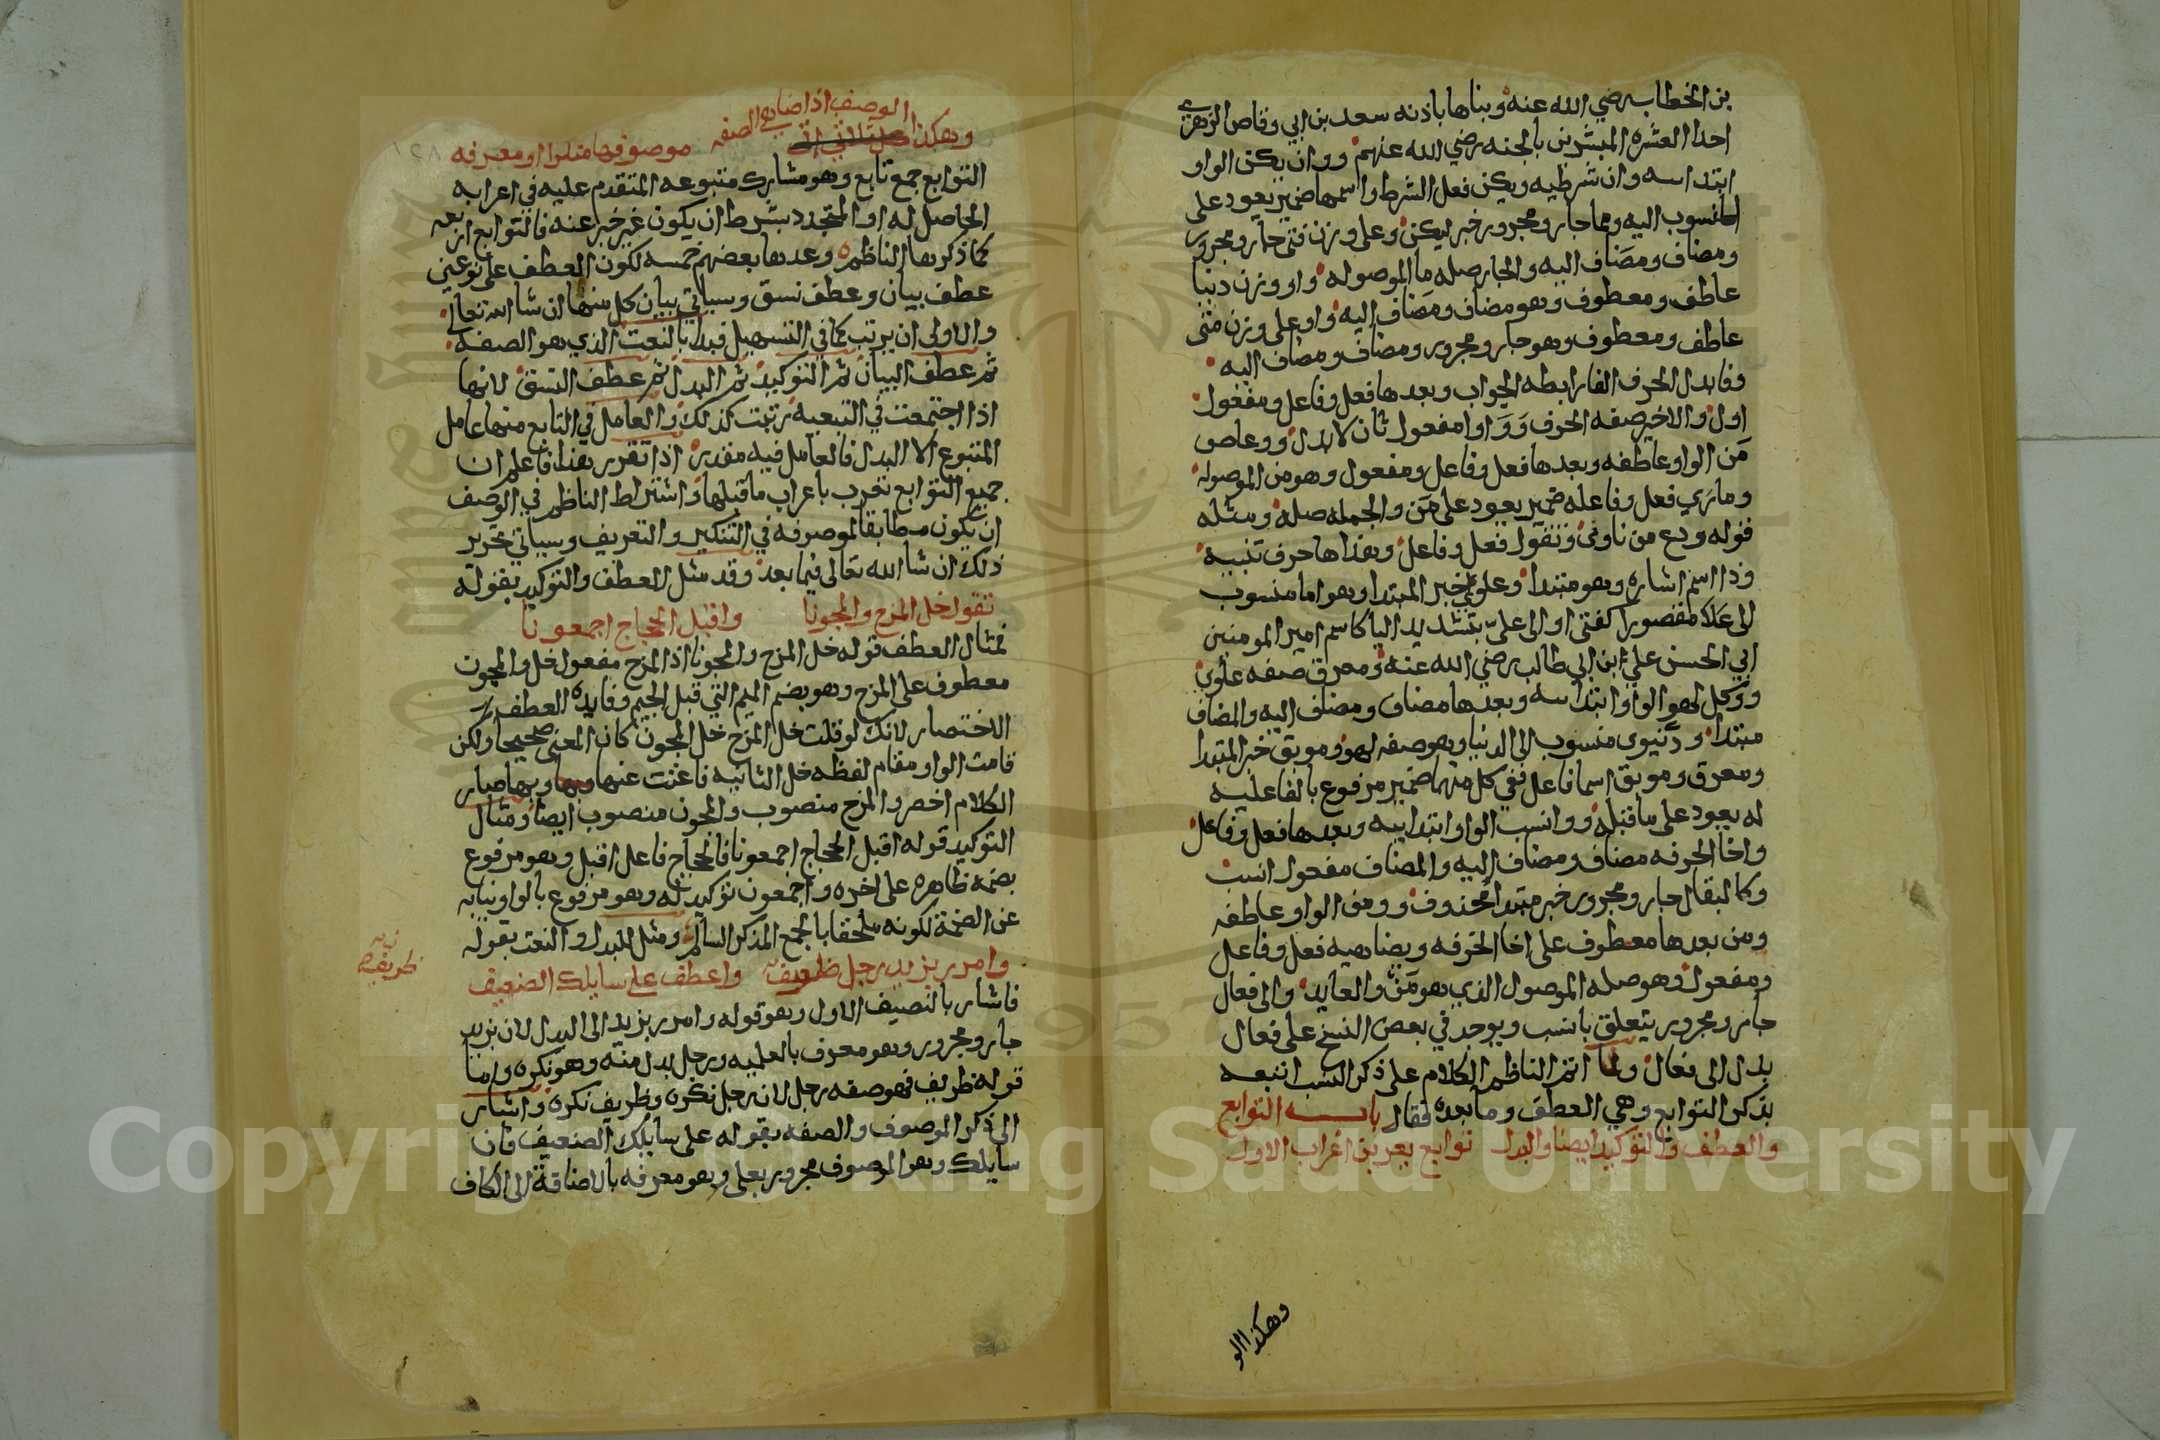 بن الخطاب رضي الله عنه وبناها باذنه سعد بن ابي وقاص الزهري
احد العشره المبشرين بالجنه رضي الله عنهم ووان يكن الواو
ابتدائيه وان شرطيه ويكن فعل الشرط واسمها ضمير يعود على
المنسوب اليه ومما جار ومجرور خبر ليكن وعلى وزن فتى جار ومجرور
ومضاف ومضاف اليه والجار صله ما الموصوله واو وزن دنيا
عاطف ومعطوف وهو مضاف ومضاف اليه واو على وزن متى
عاطف ومعطوف وهو جار ومجرور ومضاف ومضاف اليه
وفابدل الحرف الفا رابطه الجواب وبعدها فعل وفاعل ومفعول
اول والاخير صفه الحرف وَوَاوا مفعول ثان لابدل ووعاص
مَن الواو عاطفه وبعدها فعل وفاعل ومفعول وهو من الموصوله
وماري فعل وفاعله ضمير يعود على مَن والجمله صله ومثله
قوله ودع من ناوى وتقول فعل وفاعل وهذا ها حرف تنبيه
وذا اسم اشاره وهو مبتدا وعلوي خبر المبتدا وهو اما منسوب
الى علا مقصورا كفتى او الى عليّ بتشديد اليا كاسم امير المومنين
ابي الحسن علي ابن ابي طالب رضي الله عنه ومعرق صفه علوي
ووكل لهو الواو ابتدائيه وبعدها مضاف ومضاف اليه والمضاف
مبتدا ودنيوي منسوب الى الدنيا وهو صفه لهو وموبق خبر المبتدا
ومعرق وموبق اسما فاعل ففي كل منهما ضمير مرفوع بالفاعليه
له يعود على ما قبله ووانسب الواو ابتداييه وبعدها فعل وفاعل
واخا الحرفه مضاف ومضاف اليه والمضاف مفعول انسب
وكالبقال جار ومجرور خبر مبتدا محذوف وومن الواو عاطفه
ومن بعدها معطوف على اخا الحرفه ويضاهيه فعل وفاعل
ومفعول وهو صله الموصول الذي هو مَن والعايد والى فعال
جار ومجرور يتعلق بانسب ويوجد في بعض النسخ على فعال
بدل الى فعال ولما اتم الناظم الكلام على ذكر النسب اتبعه
بذكر التوابع وهي العطف وما بعده فقال باب التوابع
والعطف والتوكيد ايضا والبدل توابع يعربن اعراب الاول
وهكذا الو
وهكذا الوصف اذا ضاهى الصفه موصوفها منكرا او معرفه
التوابع جمع تابع وهو مشارك متبوعه المتقدم عليه في اعرابه
الحاصل له او المتجدد بشرط ان يكون غير خبر عنه فالتوابع اربعه
كما ذكرها الناظم وعدها بعضهم خمسه لكون العطف على نوعين
عطف بيان وعطف نسق وسياتي بيان كل منهما ان شا الله تعالى
والاولى ان يرتب كما في التسهيل فيبدا بالنعت الذي هو الصفه
ثم عطف البيان ثم التوكيد ثم البدل ثم عطف النسق لانها
اذا اجتمعت في التبعيه ترتبت كذلك والعامل في التابع منها عامل
المتبوع الا البدل فالعامل فيه مقدر اذا تقرر هذا فاعلم ان
جميع التوابع تعرب باعراب ما قبلها واشتراط الناظم في الوصف
ان يكون مطابقا لموصوفه في التنكير والتعريف وسياتي تحرير
ذلك ان شا الله تعالى فيما بعد وقد مثل العطف والتوكيد بقوله
تقول خل المزح والمجونا واقبل الحجاج اجمعونا
فمثال العطف قوله خل المزح والمجونا اذ المزح مفعول خل والمجون
معطوف على المزح وهو بضم الميم التي قبل الجيم وفايده العطف
الاختصار لانك لو قلت خل المزح خل المجون كان المعنى صحيحا ولكن
قامت الواو مقام لفظه خل الثانيه فاغنت عنها وبها صار
الكلام اخصر والمزح منصوب والمجون منصوب ايضا ومثال
التوكيد قوله اقبل الحجاج اجمعونا فالحجاج فاعل اقبل وهو مرفوع
بضمه ظاهره على اخره واجمعون توكيد له وهو مرفوع بالواو نيابه
عن الضمة لكونه ملحقا بالجمع المذكر السالم ومثل للبدل والنعت بقوله
وامرر بزيد رجل ظريف واعطف على سايلك الضعيف
ظريف
فاشار بالنصف الاول وهو قوله وامرر بزيد الى البدل لان بزيد
جار ومجرور وهو معرف بالعلميه ورجل بدل منه وهو نكره واما
قوله ظريف فهو صفه رجل لان رجل نكره وظريف نكره واشار
الى ذكر الموصوف والصفه بقوله على سايلك الضعيف فان
سايلك وهو الموصوف مجرور بعلى وهو معرفه بالاضافة الى الكاف
Copyright © King Saud University